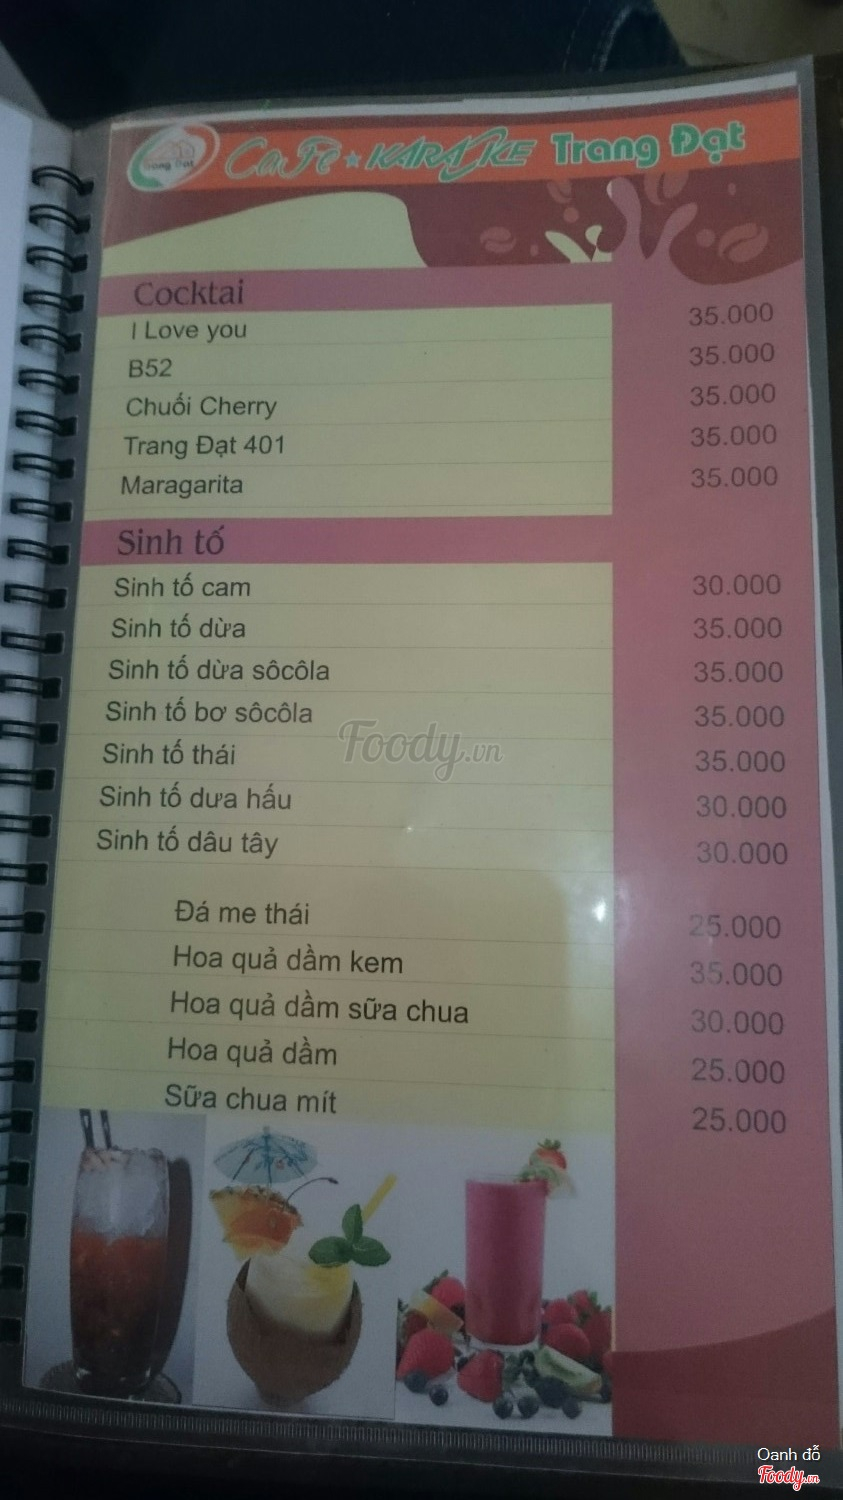 CaFe ★ KARAOKE Trang Đạt
Cocktai
I Love you 35.000
B52 35.000
Chuối Cherry 35.000
Trang Đạt 401 35.000
Maragarita 35.000
Sinh tố
Sinh tố cam 30.000
Sinh tố dừa 35.000
Sinh tố dừa sôcôla 35.000
Sinh tố bơ sôcôla 35.000
Sinh tố thái 35.000
Sinh tố dưa hấu 30.000
Sinh tố dâu tây 30.000
Đá me thái 25.000
Hoa quả dầm kem 35.000
Hoa quả dầm sữa chua 30.000
Hoa quả dầm 25.000
Sữa chua mít 25.000
Foody.vn
Oanh đỗ
Foody.vn